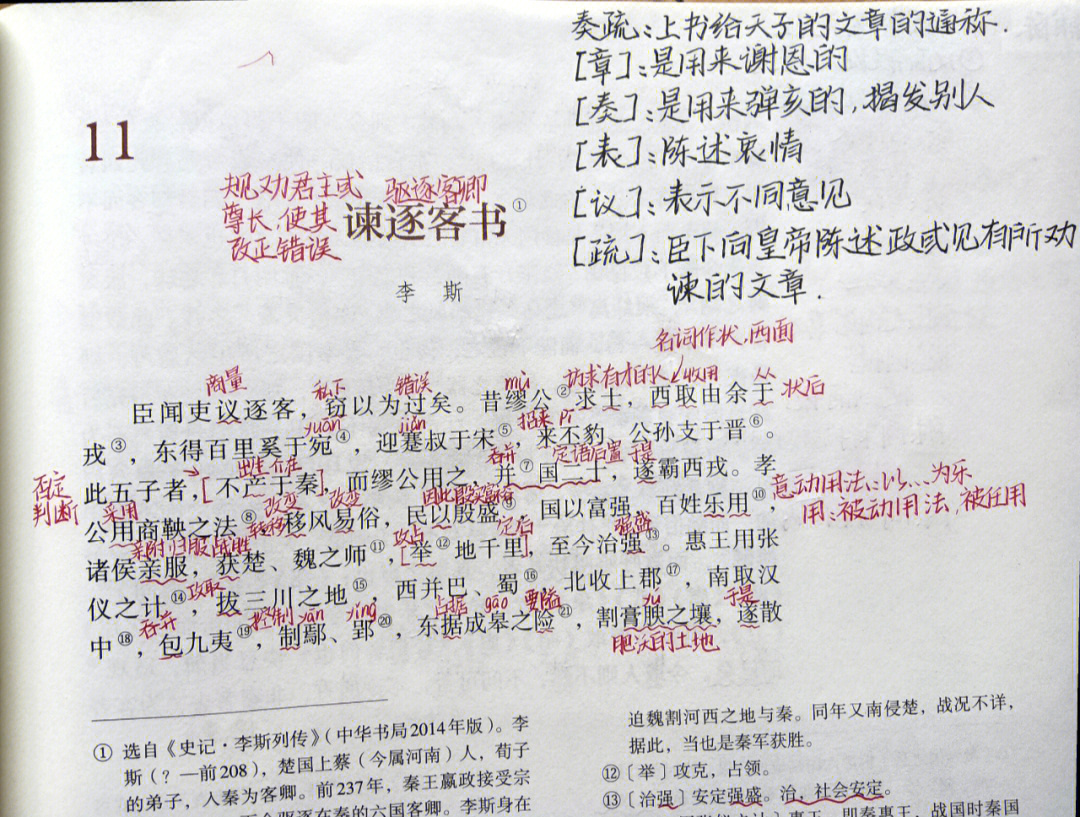 奏疏：上书给天子的文章的通称.
[章]：是用来谢恩的
[奏]：是用来弹亥的，揭发别人
[表]：陈述衷情
[议]：表示不同意见
[疏]：臣下向皇帝陈述政或见有所劝
谏的文章.
11
规劝君主或
尊长，使其
改正错误
驱逐客卿
谏逐客书①
李 斯
名词作状，西面
商量
私下
错误
mù
访求有才的人
收用
从
状后
臣闻吏议逐客，窃以为过矣。昔缪公②求士，西取由余于
yuān
jiǎn
招来
戎③，东得百里奚于宛④，迎蹇叔于宋⑤，来丕豹、公孙支于晋⑥。
出生
吞并
定语后置
于是
此五子者，[不产于秦]，而缪公用之，并⑦国二十，遂霸西戎。孝
否定
判断
采用
改变
改变
意动用法：以…为乐
用：被动用法，被任用
公用商鞅之法⑧，移风易俗，民以殷盛⑨，国以富强，百姓乐用⑩，
亲附
归服
战胜
攻占
定后
强盛
诸侯亲服，获楚、魏之师⑪，[举⑫地千里]，至今治强⑬。惠王用张
攻取
仪之计⑭，拔三川之地⑮，西并巴、蜀⑯，北收上郡⑰，南取汉
吞并
控制
yān
yǐng
占据
gāo
要隘
yú
于是
中⑱，包九夷⑲，制鄢、郢⑳，东据成皋之险㉑，割膏腴之壤，遂散
肥沃的土地
① 选自《史记·李斯列传》（中华书局2014年版）。李
斯（？—前208），楚国上蔡（今属河南）人，荀子
的弟子，入秦为客卿。前237年，秦王嬴政接受宗
驱逐在秦的六国客卿。李斯身在
迫魏割河西之地与秦。同年又南侵楚，战况不详，
据此，当也是秦军获胜。
⑫〔举〕攻克，占领。
⑬〔治强〕安定强盛。治，社会安定。
惠王，即秦惠王，战国时秦国